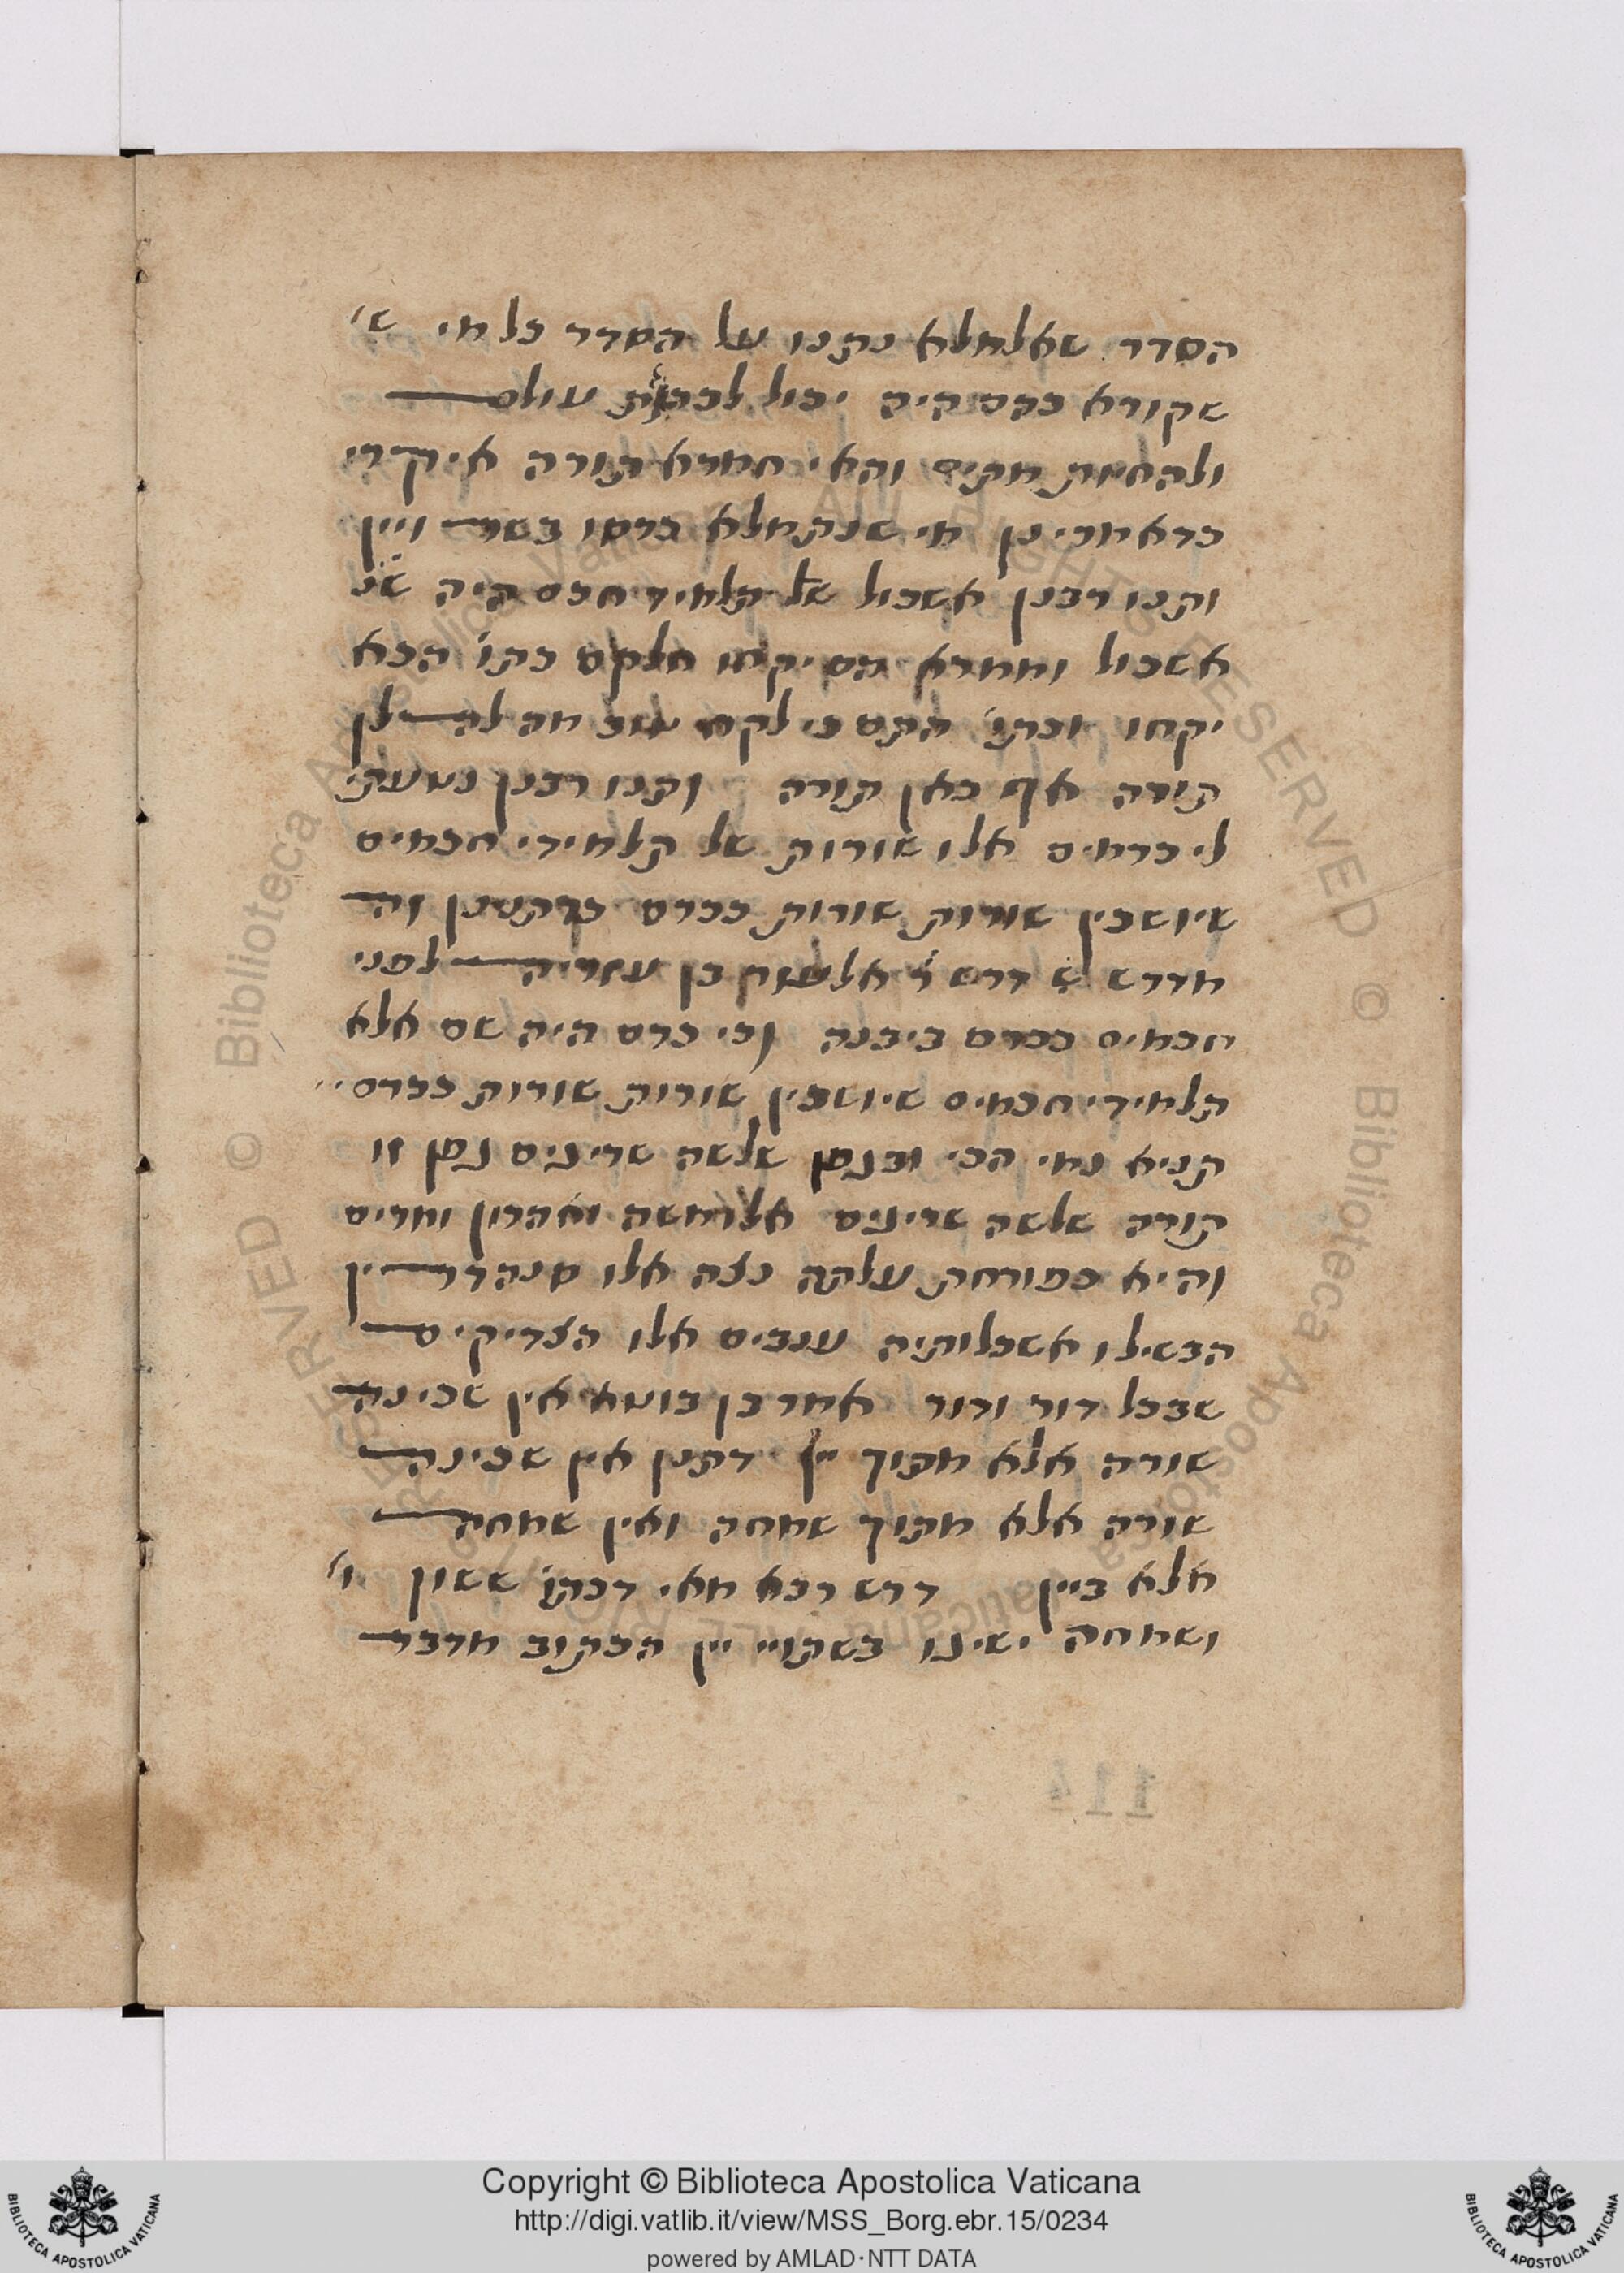 הסדר שאלמלא נתנו על הסדר כל מי ש׳
שקורא בהם היה יכול לברות עולם
ולהחיות מתים והאי חמרא תורה איקרי
כדאמרינן מי שנתמלא כרסו בשר ויין
ותנו רבנן אשכול של תלמיד חכם היה שנ׳
אשכול וממרא הם יקחו חלקם כתו׳ הכא
יקחו וכתו׳ התם כי לקח טוב מה להלן
תורה אף כאן תורה ותנו רבנן נטעתי
לי כרמים אלו שורות של תלמידי חכמים
שיושבין שורות שורות ככרם כדתנן זה
מדרש ש דרש ר׳ אלעזר בן עזריה לפני
חכמים בכרם ביבנה וכי כרם היה שם אלא
תלמידי חכמים שיושבין שורות שורות ככרם
תניא נמי הכי ובגפן שלשה שריגים גפן זו
תורה שלשה שריגים אלו משה ואהרון ומרים
והיא כפורחת עלתה נצה אלו סנהדרין
הבשילו אשכלותיה ענבים אלו הצדיקים
שבכל דור ודור אמר בן בוטא אין שכינה
שורה אלא מתוך יין דתנן אין שכינה
שורה אלא מתוך שמחה ואין שמחה
אלא ביין דרש רבא מאי דכתו׳ ששון ו׳
ושמחה ישיגו בשתויי יין הכתוב מדבר
114
Copyright © Biblioteca Apostolica Vaticana
http://digi.vatlib.it/view/MSS_Borg.ebr.15/0234
powered by AMLAD·NTT DATA